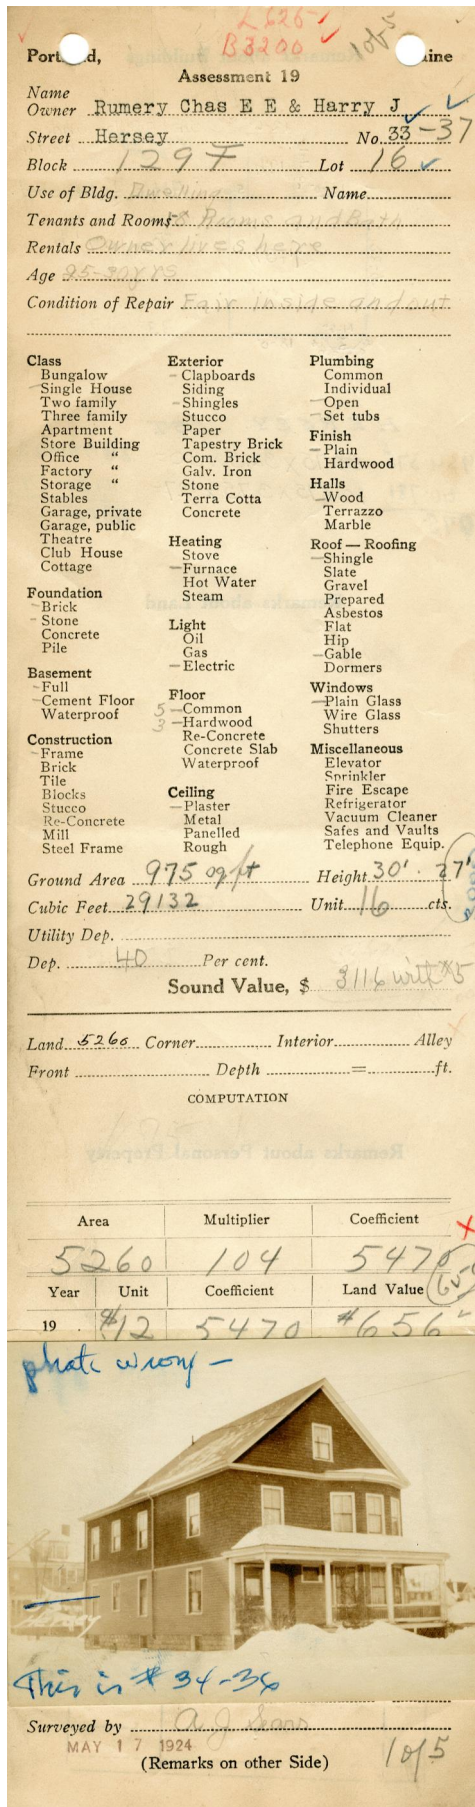 L 625-
B3200
1 of 5
Portland, Maine
Assessment 19
Name
Owner Rumery Chas E E & Harry J
Street Hersey No. 33-37
Block 129 F Lot 16
Use of Bldg. Dwelling Name
Tenants and Rooms 8 Rooms and Bath
Rentals Owner lives here
Age 25-30 yrs
Condition of Repair Fair inside and out
Class
Bungalow
Single House
Two family
Three family
Apartment
Store Building
Office "
Factory "
Storage "
Stables
Garage, private
Garage, public
Theatre
Club House
Cottage
Foundation
Brick
Stone
Concrete
Pile
Basement
Full
Cement Floor
Waterproof
Construction
Frame
Brick
Tile
Blocks
Stucco
Re-Concrete
Mill
Steel Frame
Exterior
Clapboards
Siding
Shingles
Stucco
Paper
Tapestry Brick
Com. Brick
Galv. Iron
Stone
Terra Cotta
Concrete
Heating
Stove
Furnace
Hot Water
Steam
Light
Oil
Gas
Electric
Floor
5 Common
3 Hardwood
Re-Concrete
Concrete Slab
Waterproof
Ceiling
Plaster
Metal
Panelled
Rough
Plumbing
Common
Individual
Open
Set tubs
Finish
Plain
Hardwood
Halls
Wood
Terrazzo
Marble
Roof — Roofing
Shingle
Slate
Gravel
Prepared
Asbestos
Flat
Hip
Gable
Dormers
Windows
Plain Glass
Wire Glass
Shutters
Miscellaneous
Elevator
Sprinkler
Fire Escape
Refrigerator
Vacuum Cleaner
Safes and Vaults
Telephone Equip.
Ground Area 975 sq. ft Height 30' . 27'
Cubic Feet 29132 Unit 16 cts.
Utility Dep.
Dep. 40 Per cent.
Sound Value, $ 3116 with
Land 5260 Corner Interior Alley
Front Depth = ft.
COMPUTATION
Remarks about Personal Property
Area Multiplier Coefficient
5260 104 5470
Year Unit Coefficient Land Value
19 $12 5470 $656
photo wrong -
Hersey
This is # 34-36
Surveyed by A. J. Sears
MAY 17 1924
(Remarks on other Side)
1 of 5